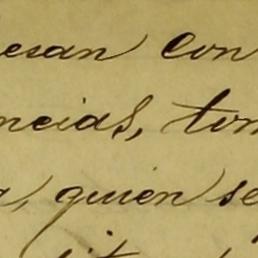 esan con
ncias, tom
a, quien se